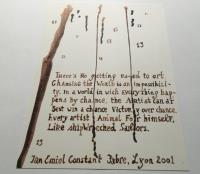 13
13
There's No getting eased to art
Changing the World is an impossibili-
ty. In a world in wich everything hap-
pens by chance, the Artist can at
best win a chance Victory over chance.
Every artist Animal For himself.
Like shipwrecked Sailors.
13
Jan Emiel Constant Fabre, Lyon 2001